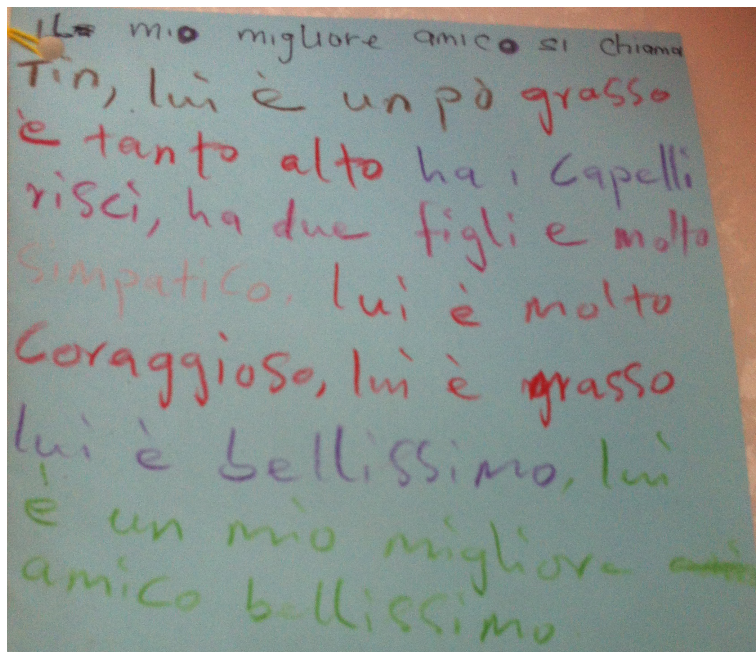 IL mio migliore amico si chiama
Tin, lui è un pò grasso
è tanto alto ha i capelli
risci, ha due figli e molto
simpatico. lui è molto
coraggioso, lui è grasso
lui è bellissimo, lui
è un mio migliore
amico bellissimo.